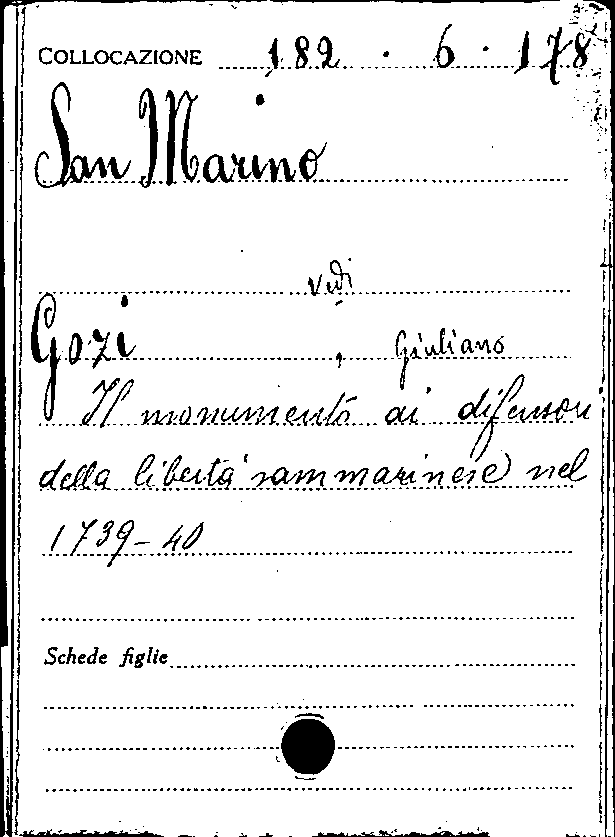 COLLOCAZIONE 182 . 6 . 178
San Marino
vedi
Gozi , Giuliano
Il monumento ai difensori
della libertà sammarinese nel
1739-40
Schede figlie